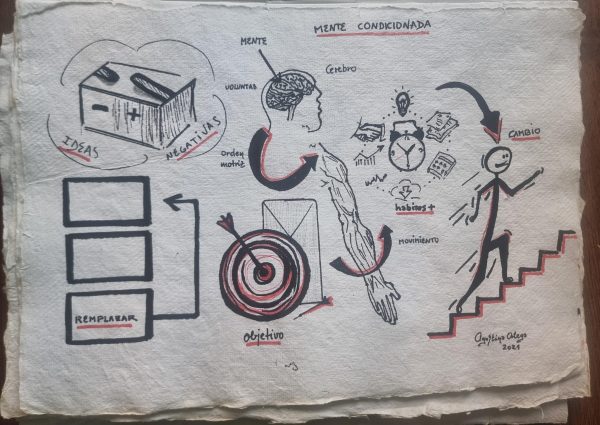 MENTE CONDICIONADA
MENTE
Cerebro
VOLUNTAD
- +
IDEAS
NEGATIVAS
Orden
motriz
CAMBIO
habitos +
MOVIMIENTO
REMPLAZAR
objetivo
2021